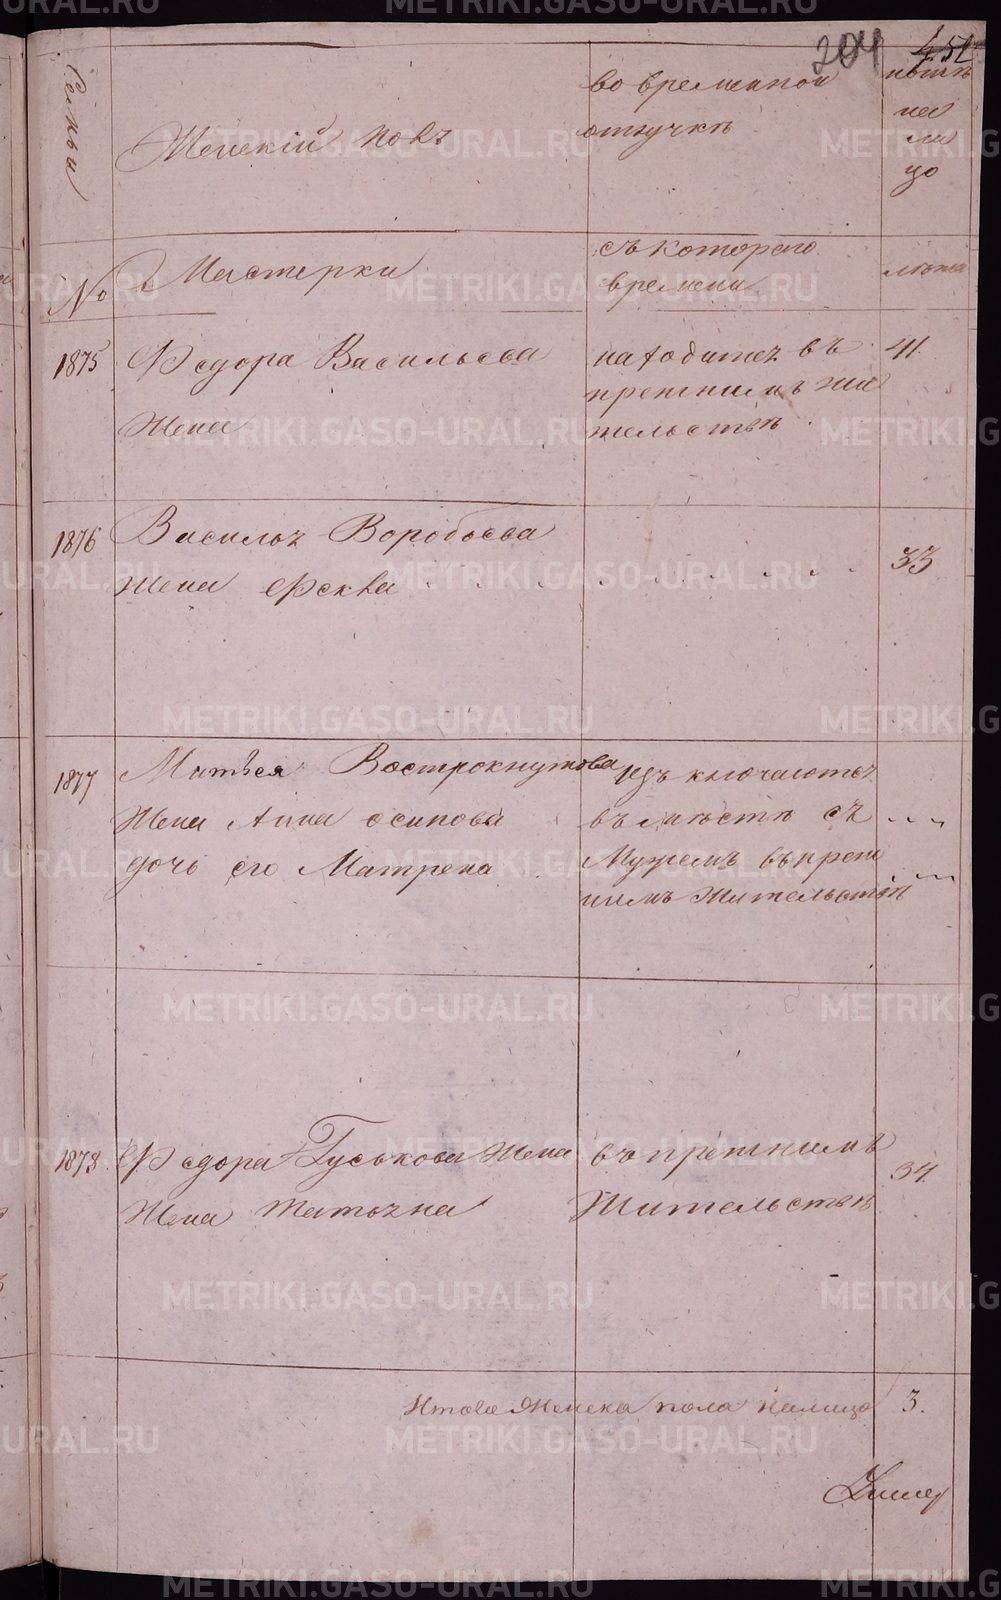 204
451
Семьи
Женскій полъ
во временной
отлучкѣ
нынѣ
на
ли
цо
№
Мастерки
съ котораго
времени
лѣта
1875
Федора Васильева
Жена
находится въ
прежнимъ жи
тельствѣ
41.
1876
Василья Воробьева
Жена Фекла
33
1877
Матвея Вострокнутова
Жена Анна осипова
дочь его Матрена
изъключаются
въ мѣстѣ съ
Мужемъ въ преж
нимъ жительствѣ
1878.
Федора Гуськова Жена
Жена Татьяна
въ прежнимъ
Жительствѣ
34.
Итово Женска пола налицо
3.
METRIKI.GASO-URAL.RU